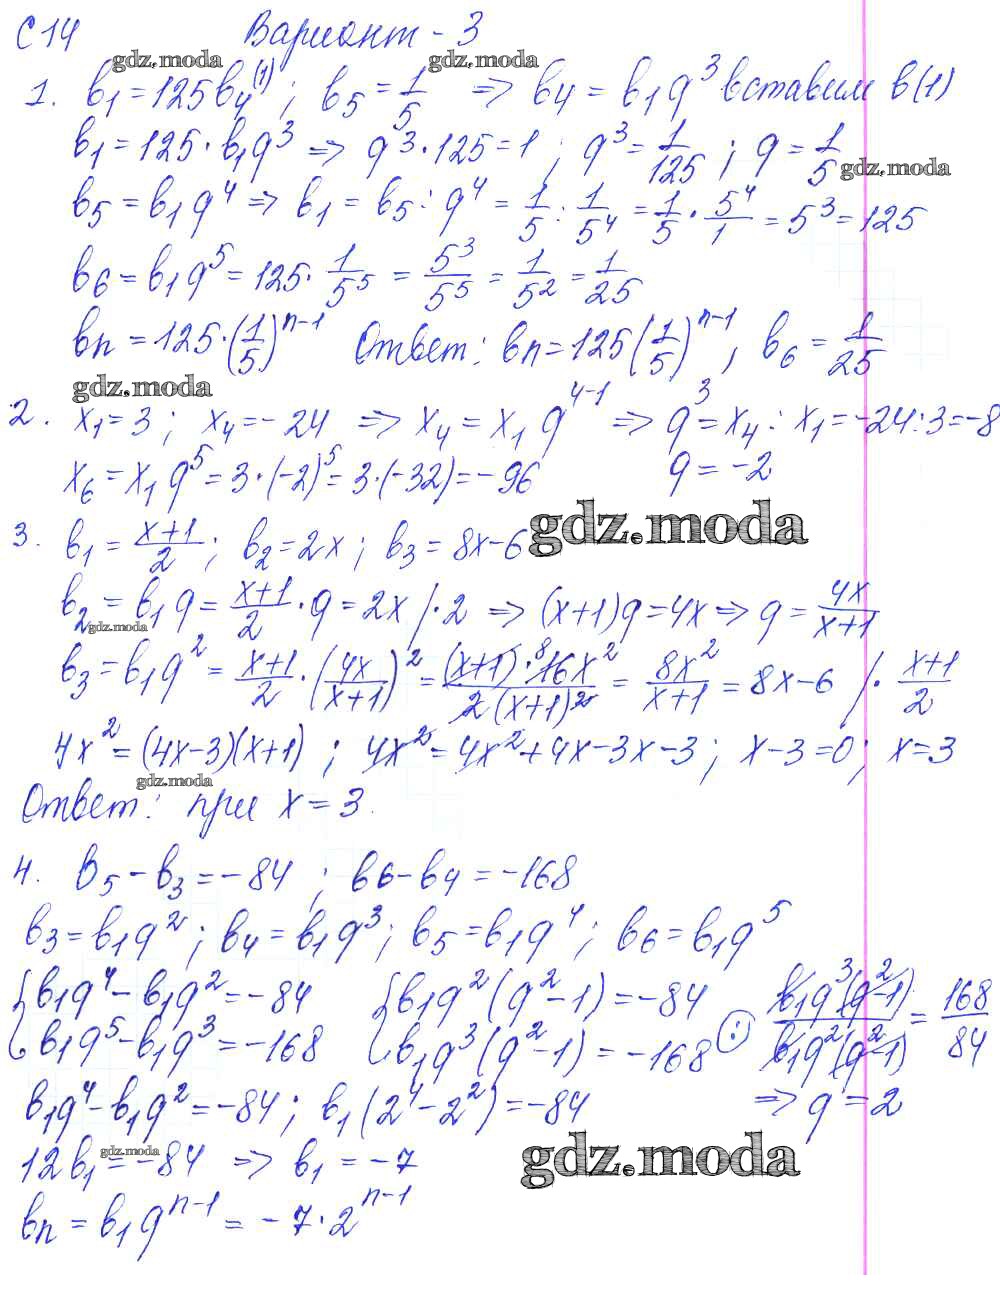 С 14 Вариант - 3
gdz.moda gdz.moda
1. b₁ = 125b₄⁽¹⁾; b₅ = 1/5 => b₄ = b₁q³ вставим в(1)
b₁ = 125·b₁q³ => q³·125 = 1; q³ = 1/125; q = 1/5
gdz.moda
b₅ = b₁q⁴ => b₁ = b₅ : q⁴ = 1/5 : 1/5⁴ = 1/5 · 5⁴/1 = 5³ = 125
b₆ = b₁q⁵ = 125· 1/5⁵ = 5³/5⁵ = 1/5² = 1/25
bₙ = 125·(1/5)ⁿ⁻¹ Ответ: bₙ = 125(1/5)ⁿ⁻¹; b₆ = 1/25
gdz.moda
2. x₁ = 3; x₄ = -24 => x₄ = x₁ q⁴⁻¹ => q³ = x₄ : x₁ = -24:3 = -8
x₆ = x₁ q⁵ = 3·(-2)⁵ = 3·(-32) = -96 q = -2
gdz.moda
3. b₁ = (x+1)/2; b₂ = 2x; b₃ = 8x-6
b₂ = b₁q = (x+1)/2 · q = 2x /·2 => (x+1)q = 4x => q = 4x/(x+1)
gdz.moda
b₃ = b₁q² = (x+1)/2 · (4x/(x+1))² = (x+1)·⁸16x²/2(x+1)² = 8x²/(x+1) = 8x-6 /· (x+1)/2
4x² = (4x-3)(x+1); 4x² = 4x² + 4x - 3x - 3; x-3 = 0; x = 3
gdz.moda
Ответ: при x = 3.
4. b₅ - b₃ = -84; b₆ - b₄ = -168
b₃ = b₁q²; b₄ = b₁q³; b₅ = b₁q⁴; b₆ = b₁q⁵
{b₁q⁴ - b₁q² = -84 {b₁q²(q²-1) = -84 b₁q³(q²-1)/b₁q²(q²-1) = 168/84
b₁q⁵ - b₁q³ = -168 b₁q³(q²-1) = -168 (:)
b₁q⁴ - b₁q² = -84; b₁(2⁴ - 2²) = -84 => q = 2
gdz.moda
12b₁ = -84 => b₁ = -7
gdz.moda
bₙ = b₁qⁿ⁻¹ = -7·2ⁿ⁻¹